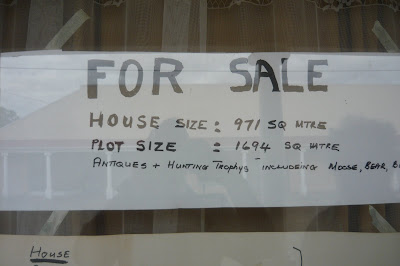 FOR SALE
HOUSE SIZE: 971 SQ MTRE
PLOT SIZE : 1694 SQ MTRE
ANTIQUES + HUNTING TROPHYS INCLUDEING MOOSE, BEAR,
HOUSE